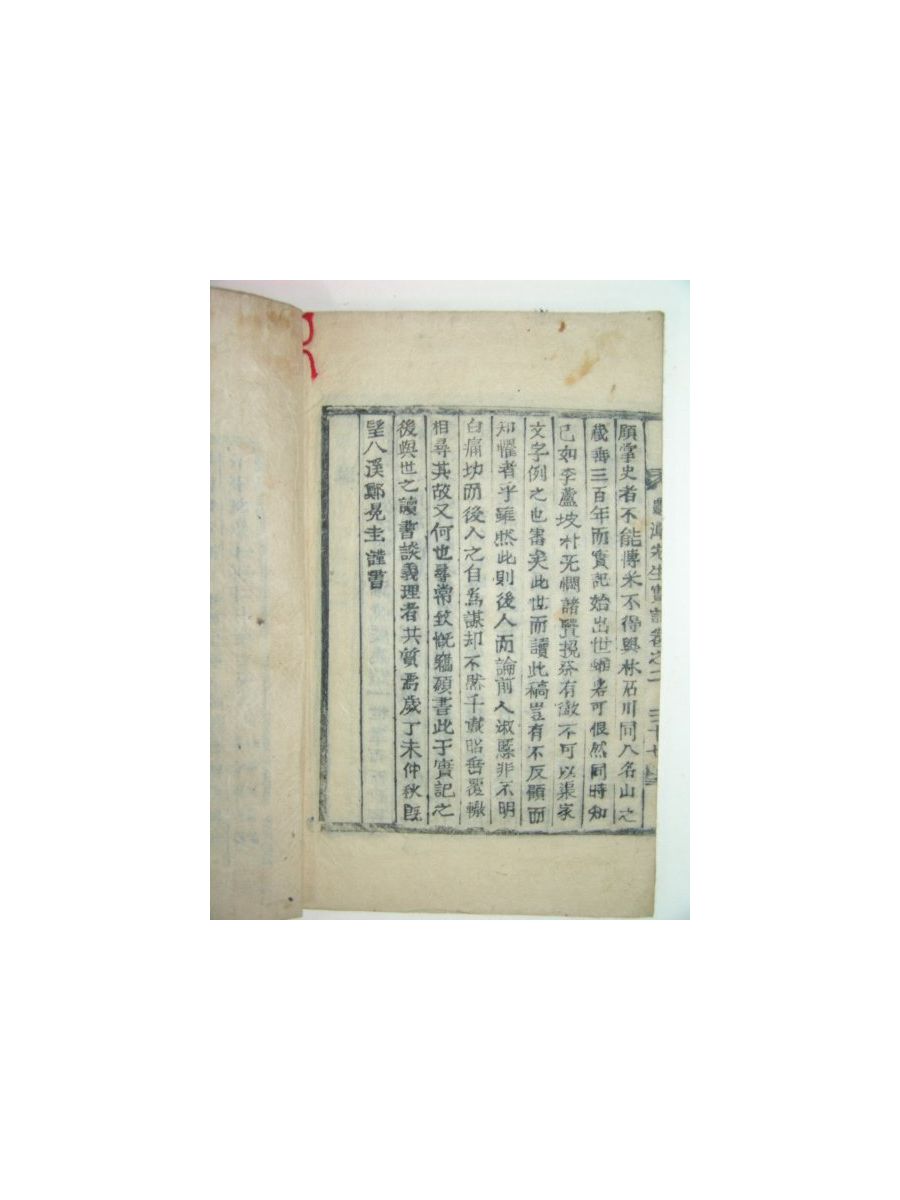 先生實記卷之二 三十七
顧掌史者不能傳未不得與林石川同入名山之
藏舟三百年而實記始出世雖若可恨然同時知
己如李蘆坡朴旡悶諸賢挽祭有徵不可以渠家
文字例之也審矣此世而讀此稿豈有不反顧而
知懼者乎雖然此則後人而論前人淑慝非不明
白痛切而後人之自爲謀却不然千載昭垂覆轍
相尋其故又何也尋常致慨竊願書此于實記之
後與世之讀書談義理者共質焉歲丁未仲秋旣
望八溪鄭冕圭謹書